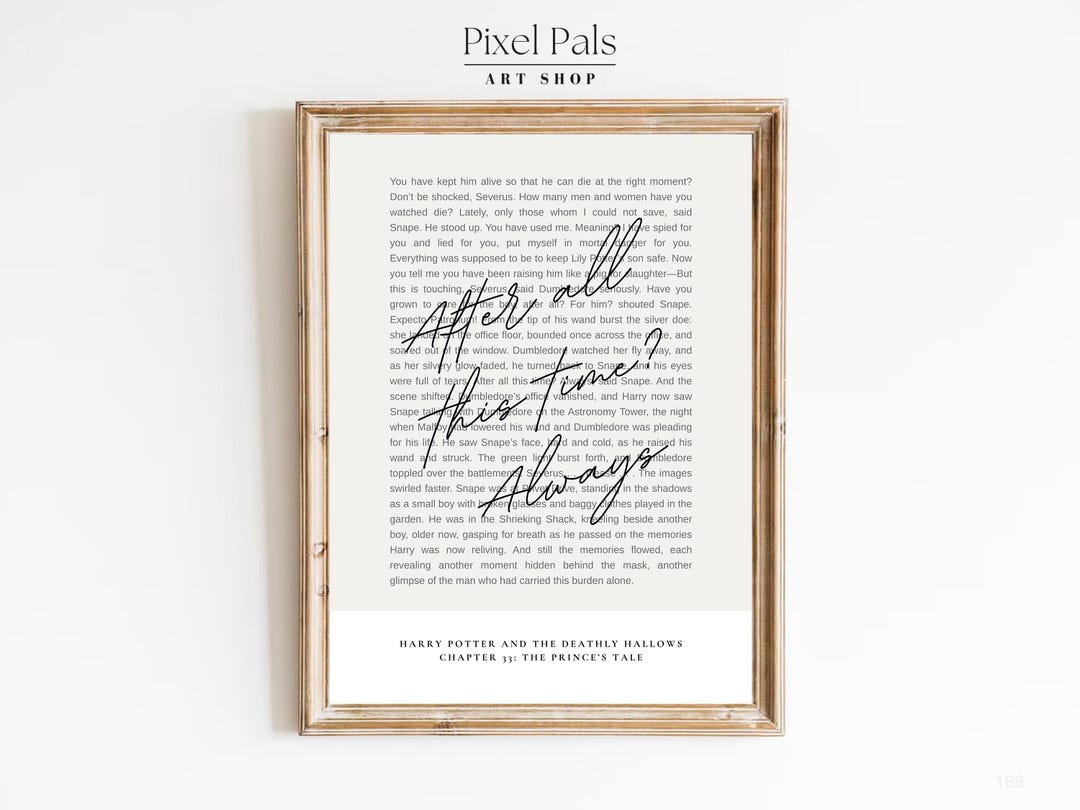 Pixel Pals
ART SHOP
You have kept him alive so that he can die at the right moment?
Don't be shocked, Severus. How many men and women have you
watched die? Lately, only those whom I could not save, said
Snape. He stood up. You have used me. Meaning? I have spied for
you and lied for you, put myself in mortal danger for you.
Everything was supposed to be to keep Lily Potter's son safe. Now
you tell me you have been raising him like a pig for slaughter—But
this is touching, Severus, said Dumbledore seriously. Have you
grown to care for the boy, after all? For him? shouted Snape.
Expecto Patronum! From the tip of his wand burst the silver doe:
she landed on the office floor, bounded once across the office, and
soared out of the window. Dumbledore watched her fly away, and
as her silvery glow faded, he turned back to Snape, and his eyes
were full of tears. After all this time? Always, said Snape. And the
scene shifted. Dumbledore's office vanished, and Harry now saw
Snape talking with Dumbledore on the Astronomy Tower, the night
when Malfoy had lowered his wand and Dumbledore was pleading
for his life. He saw Snape's face, hard and cold, as he raised his
wand and struck. The green light burst forth, and Dumbledore
toppled over the battlements. Severus. . . please. . . The images
swirled faster. Snape was at Privet Drive, standing in the shadows
as a small boy with broken glasses and baggy clothes played in the
garden. He was in the Shrieking Shack, kneeling beside another
boy, older now, gasping for breath as he passed on the memories
Harry was now reliving. And still the memories flowed, each
revealing another moment hidden behind the mask, another
glimpse of the man who had carried this burden alone.
After all
this time?
Always
HARRY POTTER AND THE DEATHLY HALLOWS
CHAPTER 33: THE PRINCE'S TALE
169